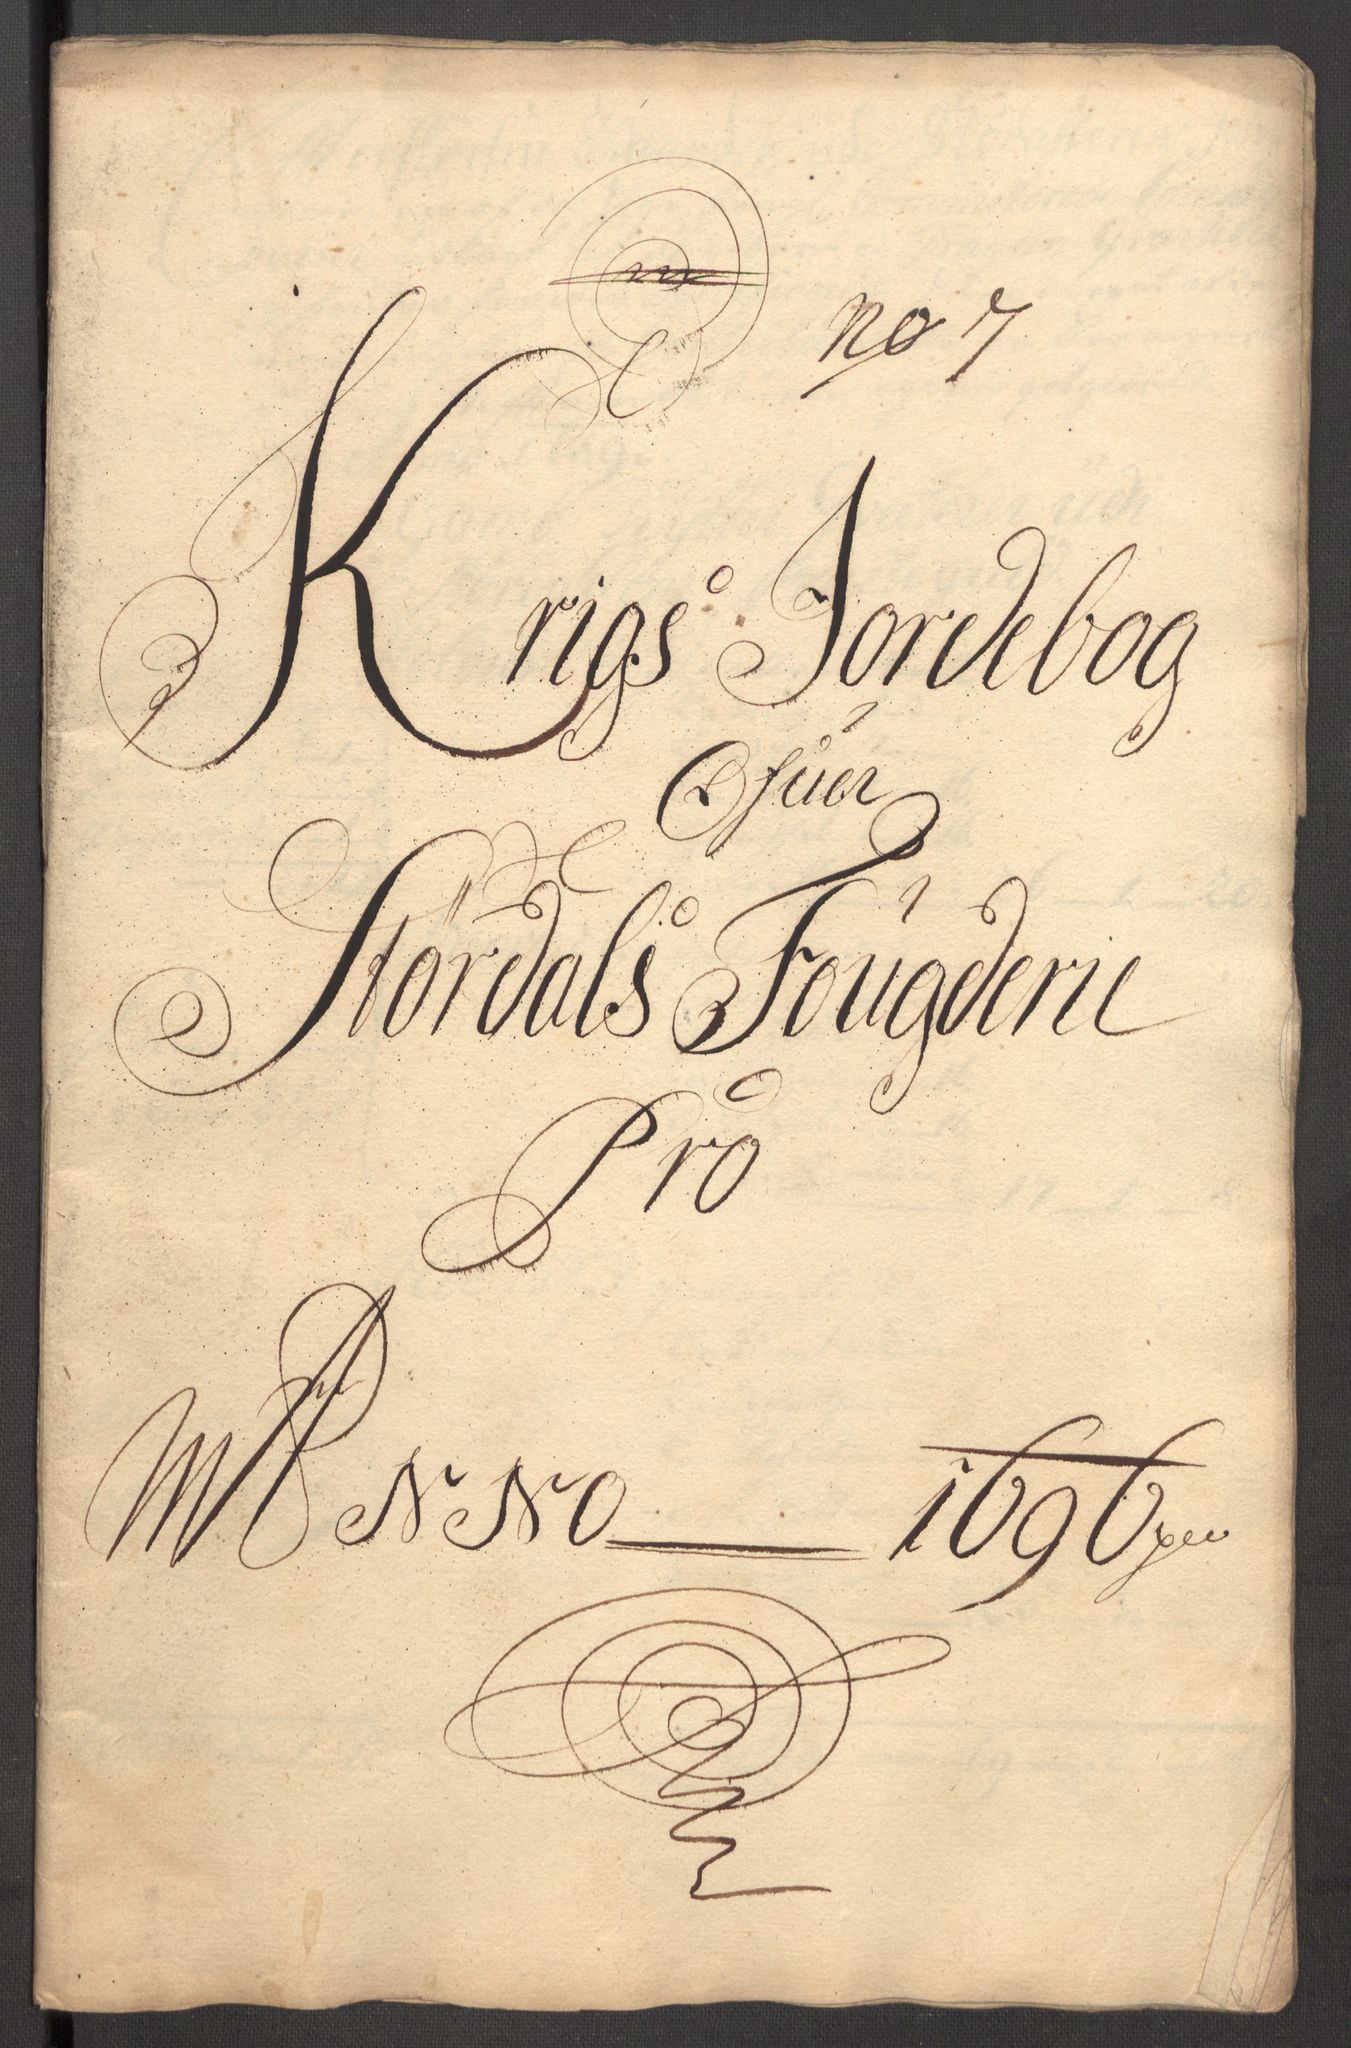 No 7
Krigs Jordebog
Ofuer
Stördals Fougderie
Pro
ANNO 1696